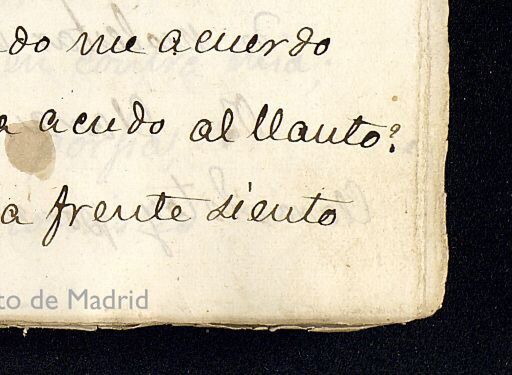 do me acuerdo
a acudo al llanto?
a frente siento
to de Madrid